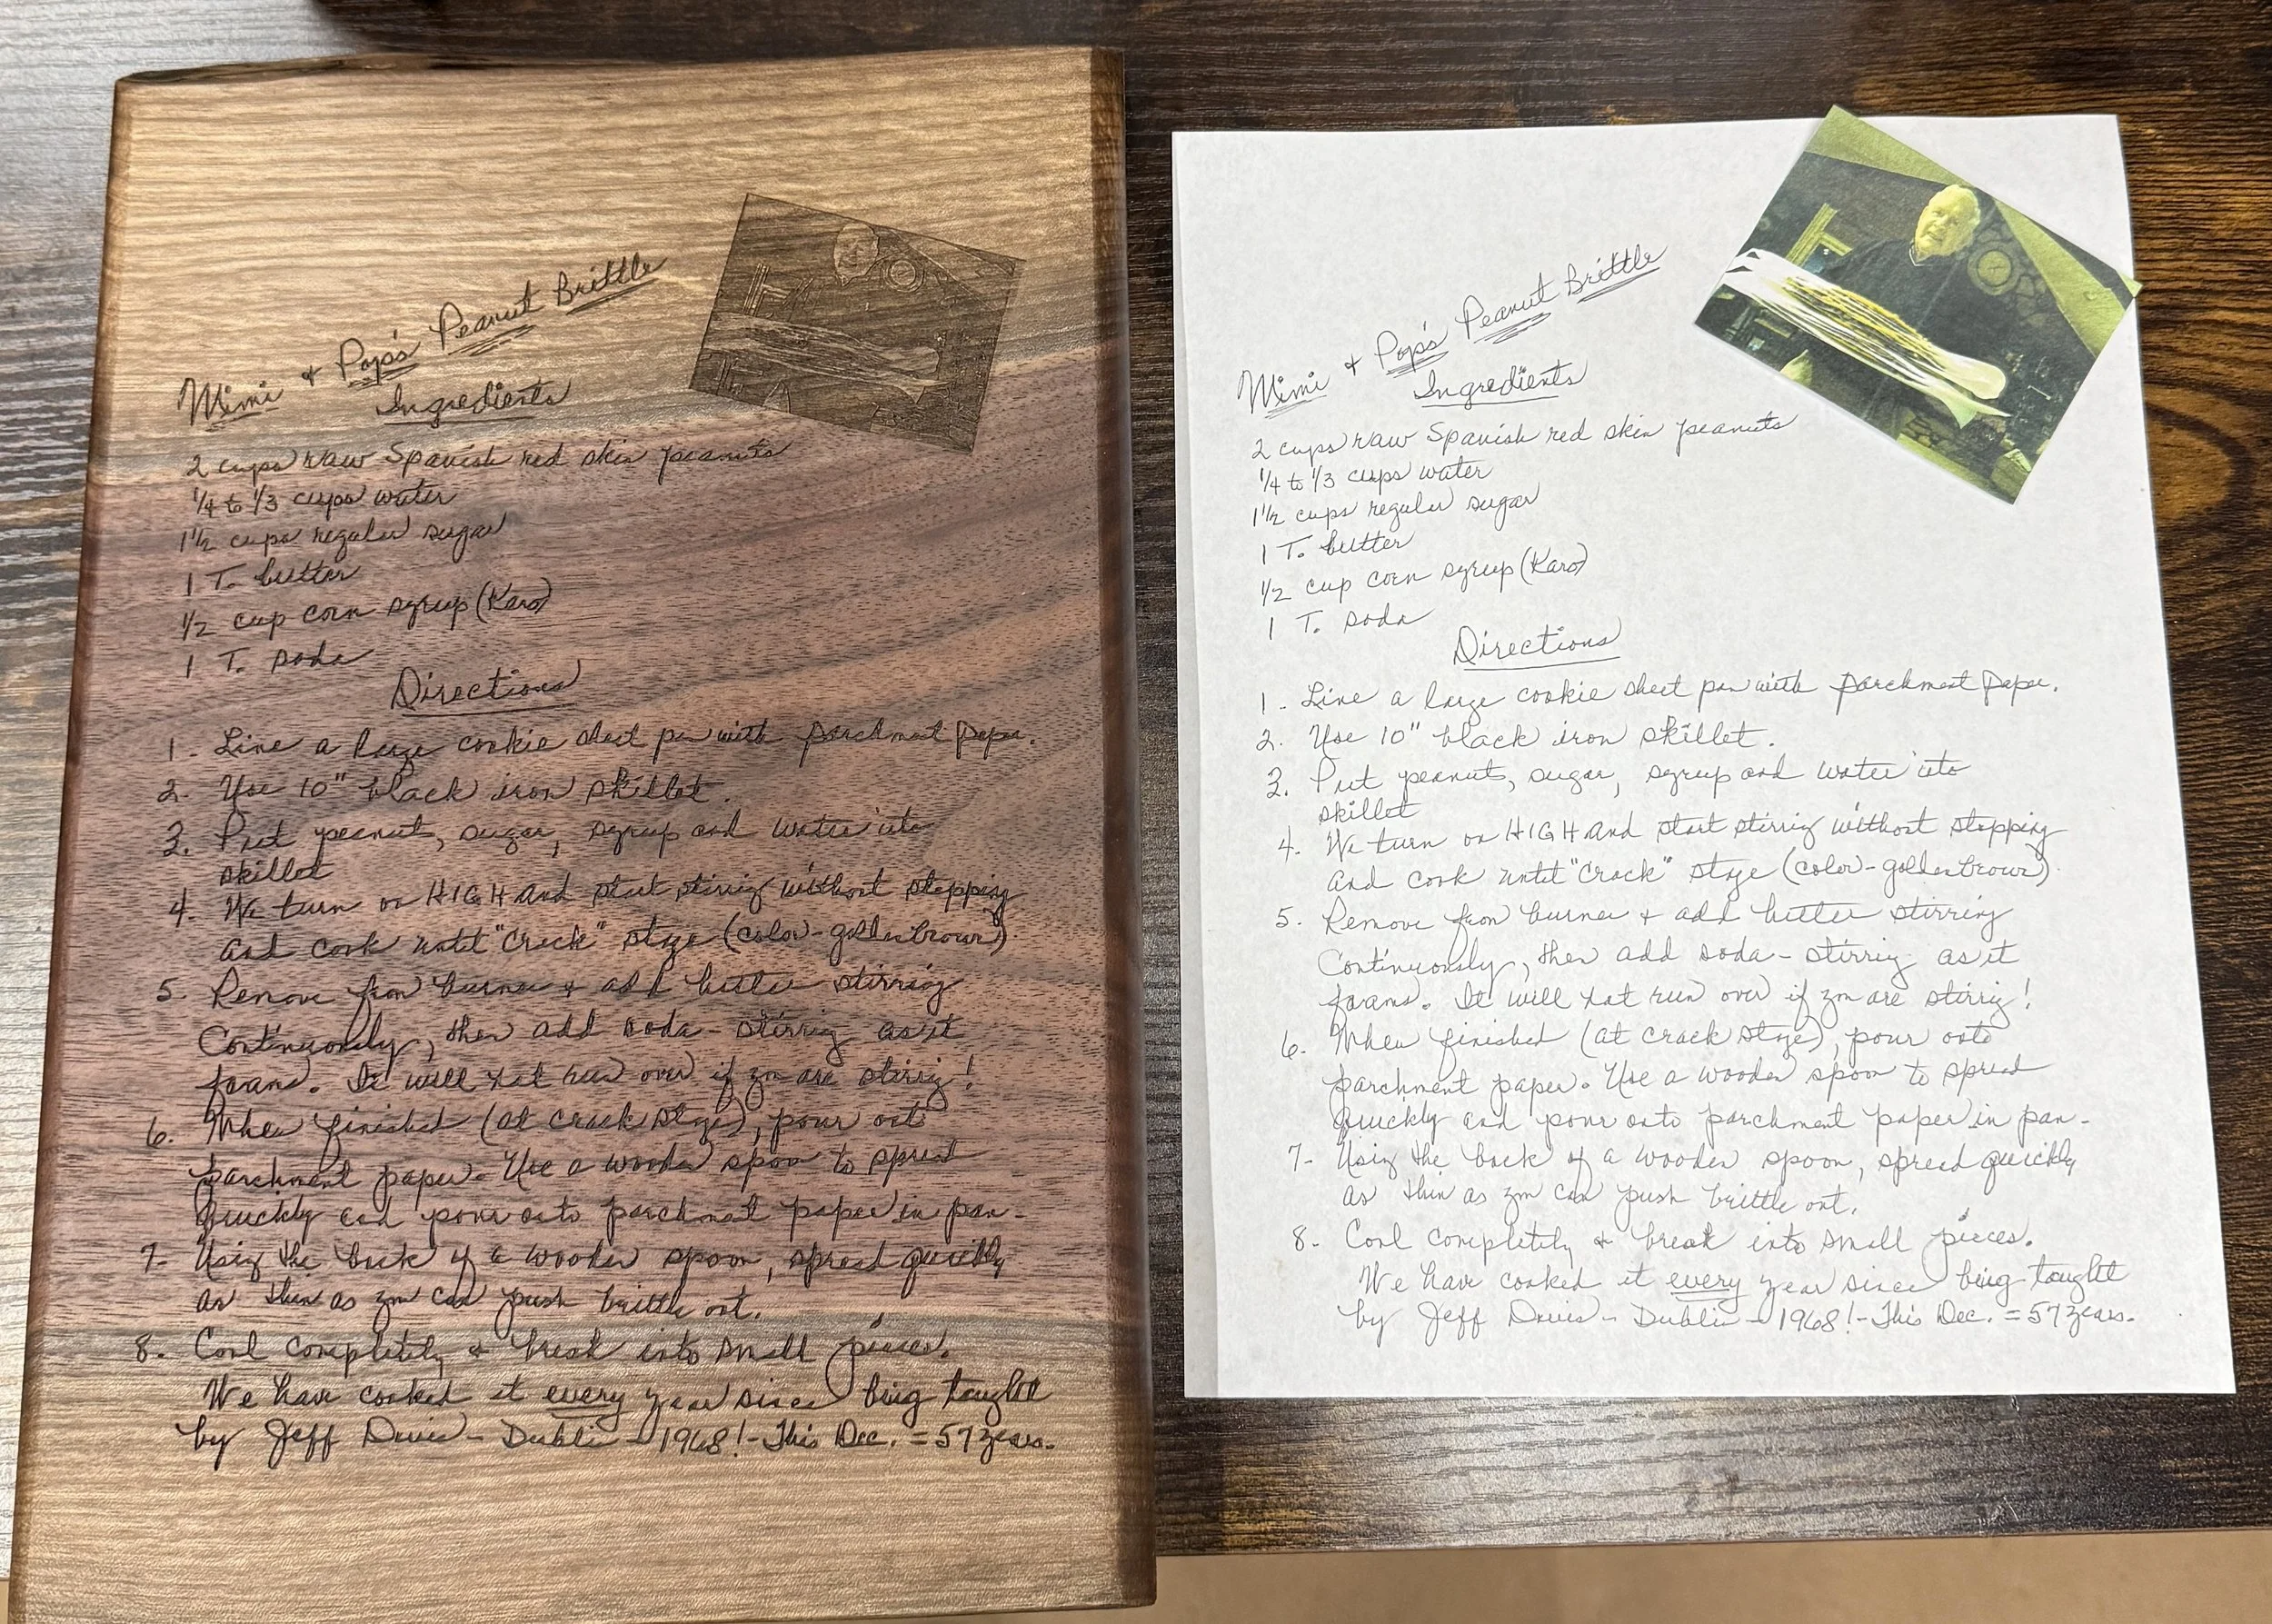 Mimi & Pop's Peanut Brittle
Ingredients
2 cups raw Spanish red skin peanuts
1/4 to 1/3 cups water
1 1/2 cups regular sugar
1 T. butter
1/2 cup corn syrup (Karo)
1 T. soda
Directions
1. Line a large cookie sheet pan with parchment paper.
2. Use 10" black iron skillet.
3. Put peanuts, sugar, syrup and water into
skillet
4. We turn on HIGH and start stirring without stopping
and cook until "Crack" stage (color-golden brown).
5. Remove from burner & add butter stirring
Continuously, then add soda - stirring as it
foams. It will not run over if you are stirring!
6. When finished (at crack stage), pour onto
parchment paper. Use a wooden spoon to spread
quickly and pour onto parchment paper in pan.
7. Using the back of a wooden spoon, spread quickly
as thin as you can push brittle out.
8. Cool completely & break into small pieces.
We have cooked it every year since being taught
by Jeff Davis - Dublin - 1968! - This Dec. = 57 years.
Mimi & Pop's Peanut Brittle
Ingredients
2 cups raw Spanish red skin peanuts
1/4 to 1/3 cups water
1 1/2 cups regular sugar
1 T. butter
1/2 cup corn syrup (Karo)
1 T. soda
Directions
1. Line a large cookie sheet pan with parchment paper.
2. Use 10" black iron skillet.
3. Put peanuts, sugar, syrup and water into
skillet
4. We turn on HIGH and start stirring without stopping
and cook until "Crack" stage (color-golden brown).
5. Remove from burner & add butter stirring
Continuously, then add soda - stirring as it
foams. It will not run over if you are stirring!
6. When finished (at crack stage), pour onto
parchment paper. Use a wooden spoon to spread
quickly and pour onto parchment paper in pan.
7. Using the back of a wooden spoon, spread quickly
as thin as you can push brittle out.
8. Cool completely & break into small pieces.
We have cooked it every year since being taught
by Jeff Davis - Dublin - 1968! - This Dec. = 57 years.